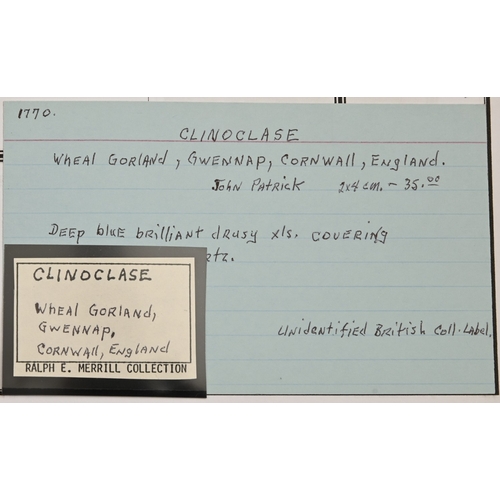 1770.
CLINOCLASE
WHEAL GORLAND, GWENNAP, CORNWALL, ENGLAND.
JOHN PATRICK 2x4 cm. - 35.00
DEEP blue brilliant drusy xls. COVERING
rtz.
UNIDENTIFIED BRITISH COLL. LABEL.
CLINOCLASE
WHEAL GORLAND,
GWENNAP,
CORNWALL, ENGLAND
RALPH E. MERRILL COLLECTION